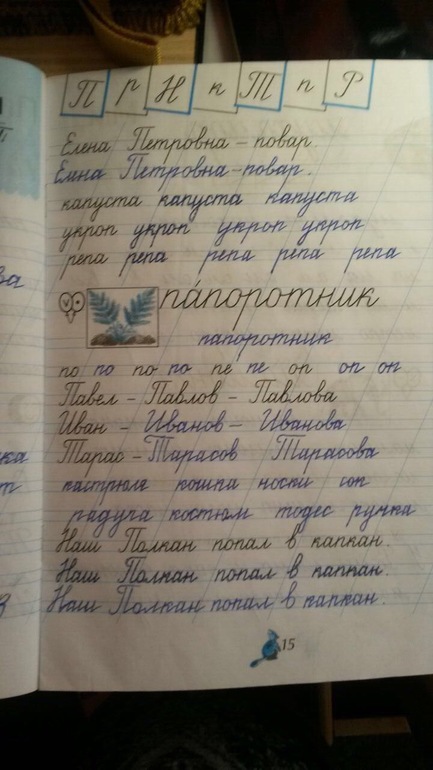 П р Н к Т п Р
Елена Петровна – повар.
Елена Петровна – повар.
капуста капуста капуста
укроп укроп укроп укроп
репа репа репа репа репа
па́поротник
папоротник
по по по по пе пе оп оп оп
Павел – Павлов – Павлова
Иван – Иванов – Иванова
Тарас – Тарасов Тарасова
кастрюля кошка носки сок
радуга костюм ручка
Наш Полкан попал в капкан.
Наш Полкан попал в капкан.
Наш Полкан попал в капкан.
15